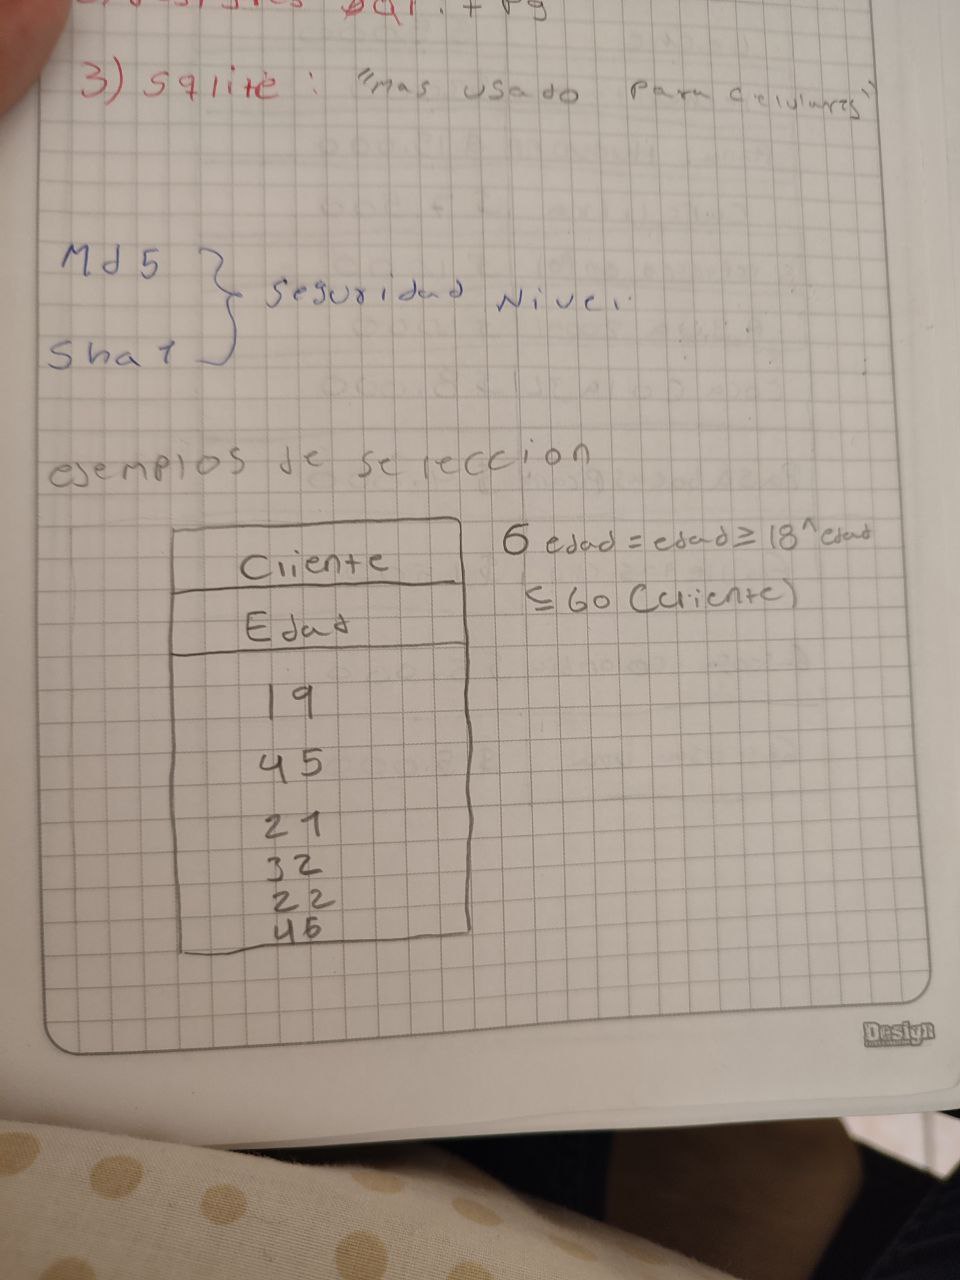 3) sqlite: "mas usado para celulares"
Md5
seguridad Nivel
Sha1
ejemplos de seleccion
Cliente
Edad
19
45
21
32
22
45
6 edad = edad ≥ 18 ^ edad
≤ 60 (cliente)
Design